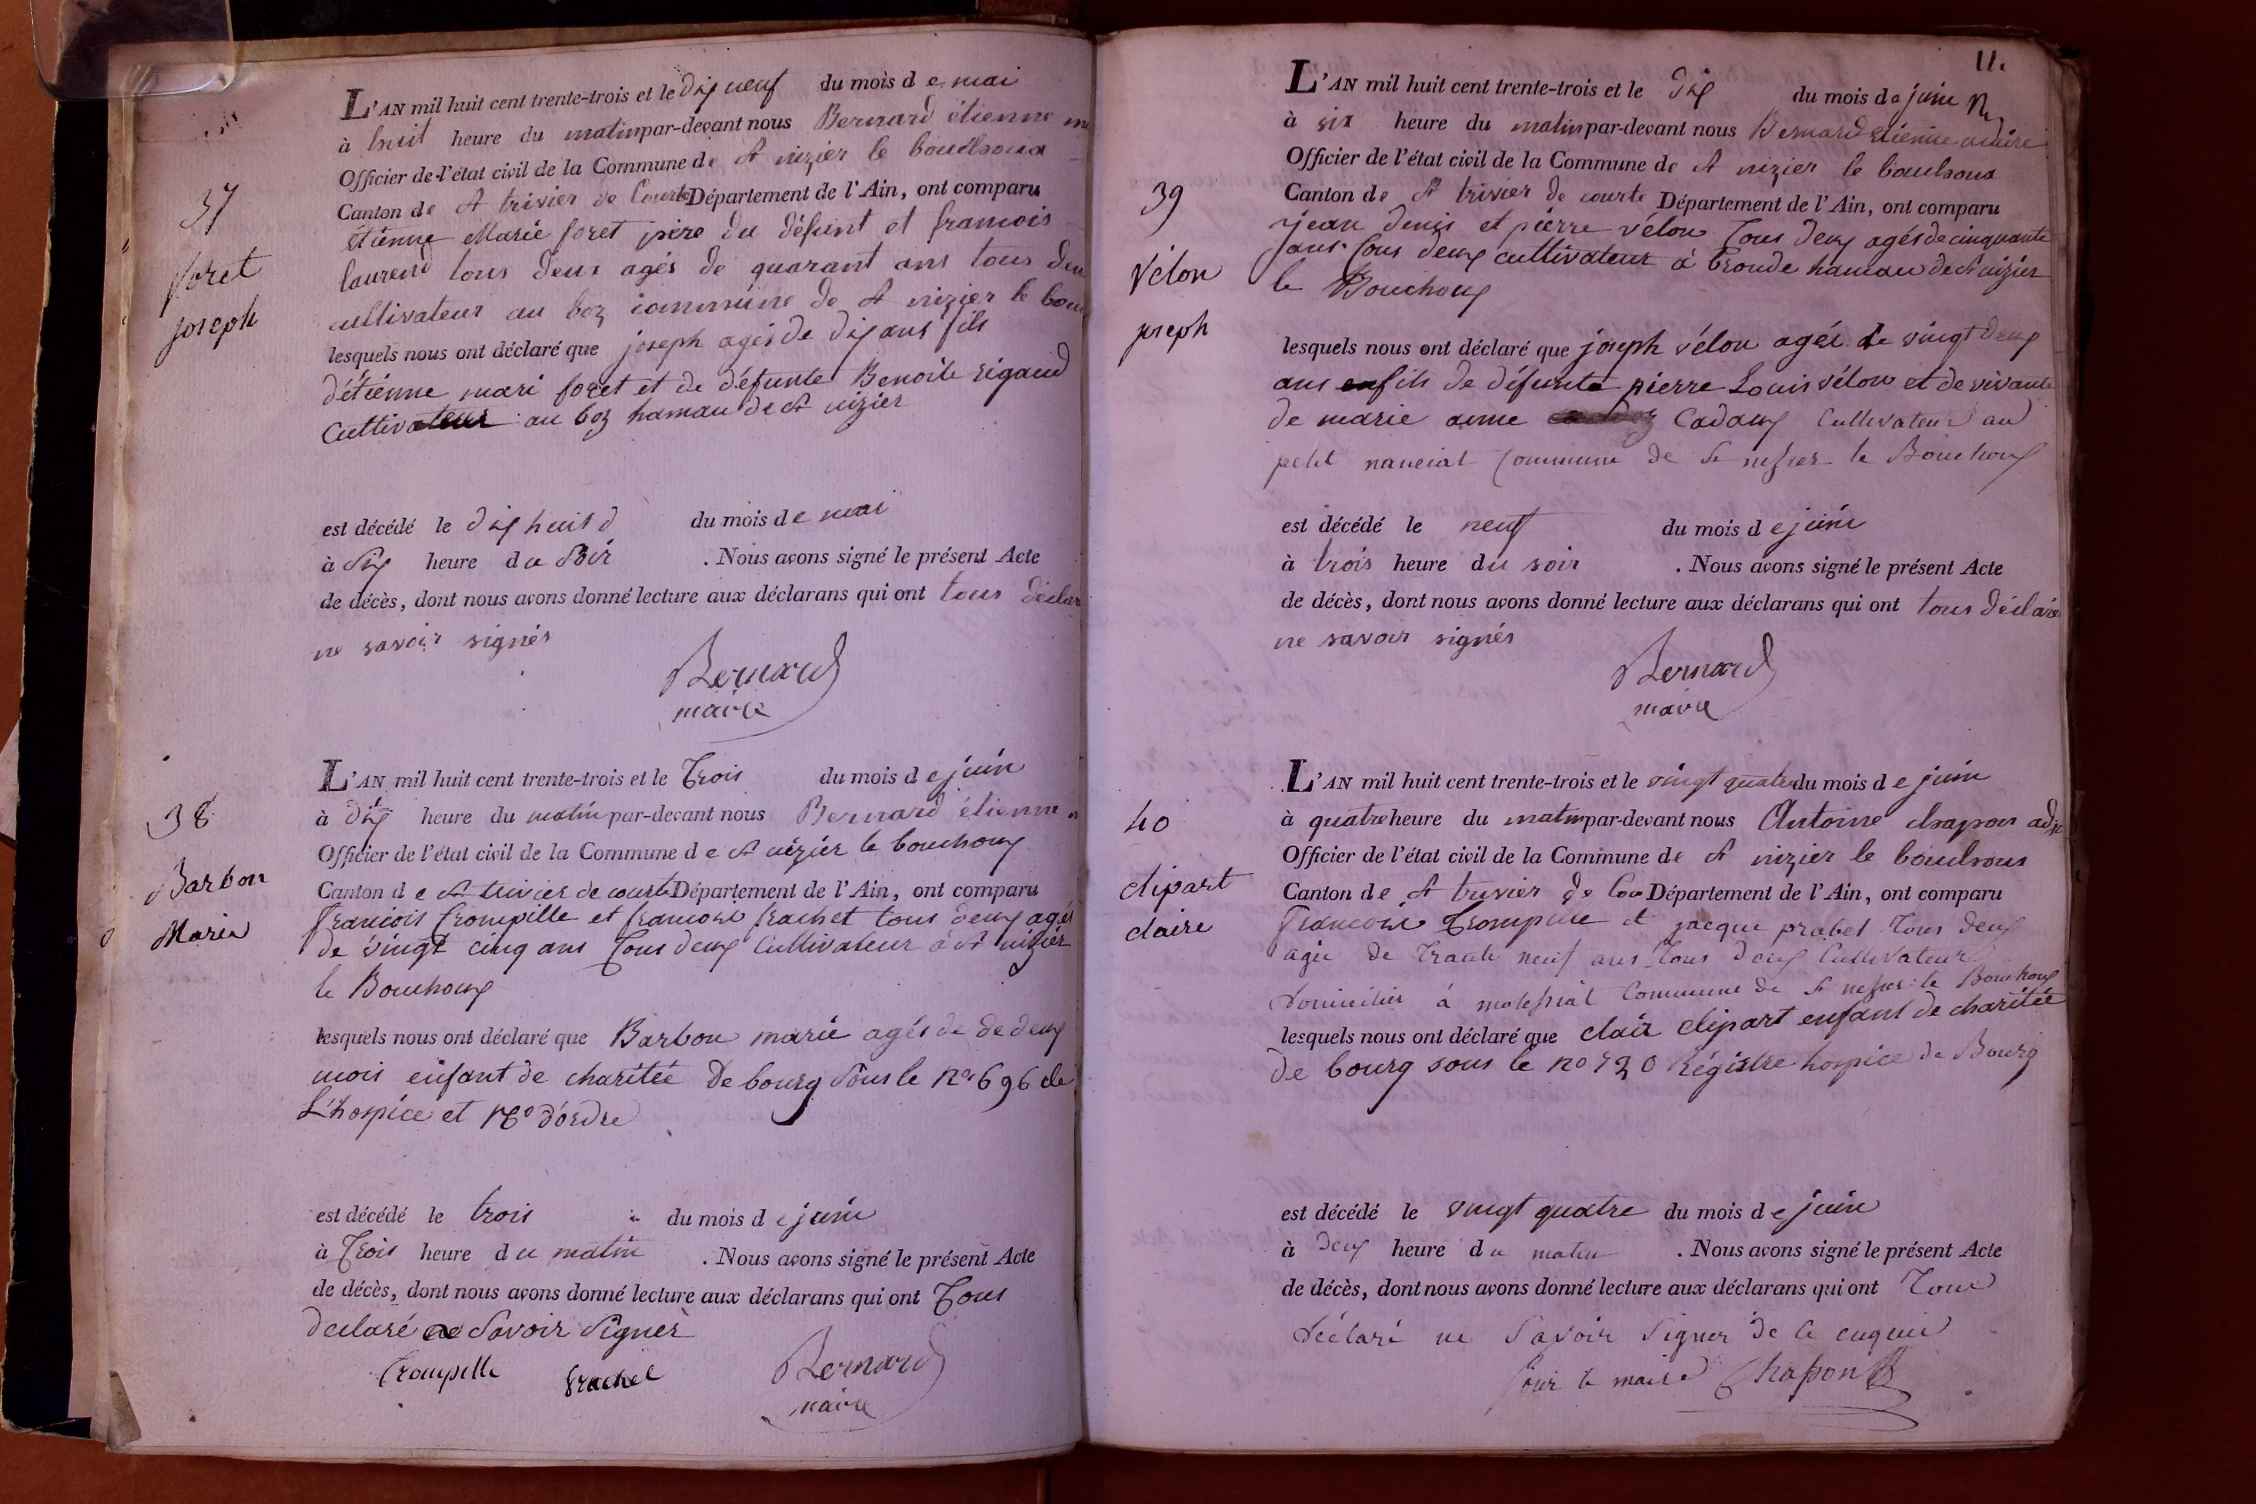 37
foret
joseph
L'AN mil huit cent trente-trois et le dix neuf du mois de mai
à huit heure du matin par-devant nous Bernard étienne
Officier de l'état civil de la Commune de st nizier le bouchoux
Canton de st trivier de Courte Département de l'Ain, ont comparu
étienne Marie foret père du défunt et francois
laurend tous deux agés de quarant ans tous deu
cultivateur au boz commune de st nizier le bou
lesquels nous ont déclaré que joseph agés de dix ans fils
d'étienne mari foret et de défunte Benoite rigaud
Cultivateur au boz hamau de st nizier
est décédé le dix huit du mois de mai
à six heure du soir . Nous avons signé le présent Acte
de décès, dont nous avons donné lecture aux déclarans qui ont tous déclar
ne savoir signés
Bernard
maire
38
Barbon
Marie
L'AN mil huit cent trente-trois et le trois du mois de juin
à dix heure du matin par-devant nous Bernard étienne
Officier de l'état civil de la Commune de st nizier le bouchoux
Canton de st trivier de courte Département de l'Ain, ont comparu
francois trompille et francois frachet tous deux agés
de vingt cinq ans tous deux Cultivateur à st nizier
le Bouchoux
lesquels nous ont déclaré que Barbon marie agés de de deux
mois enfant de charitée De bourg sous le no 696 de
L'hospice et no d'ordre
est décédé le trois du mois de juin
à trois heure du matin . Nous avons signé le présent Acte
de décès, dont nous avons donné lecture aux déclarans qui ont tous
declaré savoir signer
trompille frachet Bernard
maire
11.
39
vélon
joseph
L'AN mil huit cent trente-trois et le dix du mois de juin
à six heure du matin par-devant nous Bernard étienne maire
Officier de l'état civil de la Commune de st nizier le bouchoux
Canton de st trivier de courte Département de l'Ain, ont comparu
jean denis et pierre vélon tous deux agés de cinquante
ans tous deux cultivateur à tronde hamau de st nizier
le Bouchoux
lesquels nous ont déclaré que joseph vélon agés de vingt deux
ans fils de défunte pierre Louis vélon et de vivante
de marie anne Cadoux Cultivateur au
petit nanciat Commune de st nesier le Bouchoux
est décédé le neuf du mois de juin
à trois heure du soir . Nous avons signé le présent Acte
de décès, dont nous avons donné lecture aux déclarans qui ont tous déclaré
ne savoir signés
Bernard
maire
40
clipart
claire
L'AN mil huit cent trente-trois et le vingt quatre du mois de juin
à quatre heure du matin par-devant nous Antoine chapon adj
Officier de l'état civil de la Commune de st nizier le bouchoux
Canton de st trivier de Cou Département de l'Ain, ont comparu
francois trompille et jacque prabel tous deux
agée de trante neuf ans tous deux Cultivateur
domicilier à Commune de st nesier le Bouchoux
lesquels nous ont déclaré que clair clipart enfant de charitée
de bourg sous le no 720 Régistre hospice de Bourg
est décédé le vingt quatre du mois de juin
à deux heure du matin . Nous avons signé le présent Acte
de décès, dont nous avons donné lecture aux déclarans qui ont tous
déclaré ne savoir signer de ce enquis
pour le maire Chapon